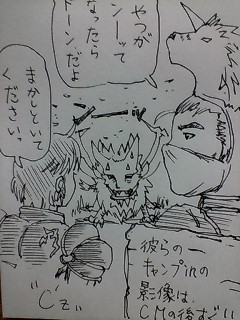 やつが
ンーッて
なったら
ドーンだよ
まかしといて
ください。
彼らの
キャンプinの
影像は、
CMの後すごい
"C'z"